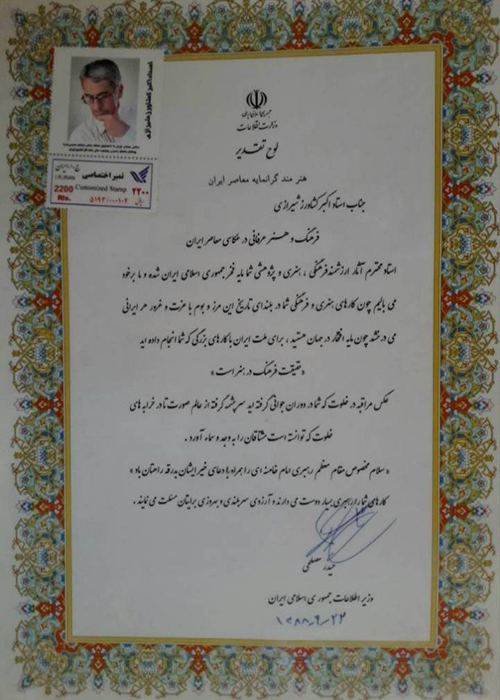 استاد اکبر کشاورز شیرازی
تمبر اختصاصی
Customized Stamp
2200
Rls.
۲۲۰۰
ریال
جمهوری اسلامی ایران
وزارت اطلاعات
لوح تقدیر
هنر مند گرانمایه معاصر ایران
جناب استاد اکبر کشاورز شیرازی
فرهنگ و هنر عرفانی در عکاسی معاصر ایران
استاد محترم آثار ارزشمند فرهنگی ، هنری و پژوهشی شما مایه فخر جمهوری اسلامی ایران شده و ما برخود
می بالیم چون کارهای هنری و فرهنگی شما در بلندای تاریخ این مرز و بوم با عزت و غرور هر ایرانی
می درخشد چون مایه افتخار در جهان هستید ، برای ملت ایران با کارهای بزرگی که شما انجام داده اید
«حقیقت فرهنگ در هنر است»
عکس مراقبه در خلوت که شما در دوران جوانی گرفته اید سرچشمه گرفته از عالم صورت تا در خرابه های
خلوت که توانسته است مشتاقان را به وجد و سماء آورد .
«سلام مخصوص مقام معظم رهبری امام خامنه ای را همراه با دعای خیر ایشان بدرقه راهتان باد»
کارهای شما را رهبری بسیار دوست می دارند و آرزوی سربلندی و بهروزی برایتان مسئلت می نمایند .
حیدر مصلحی
وزیر اطلاعات جمهوری اسلامی ایران
۱۳۸۸-۹-۲۲